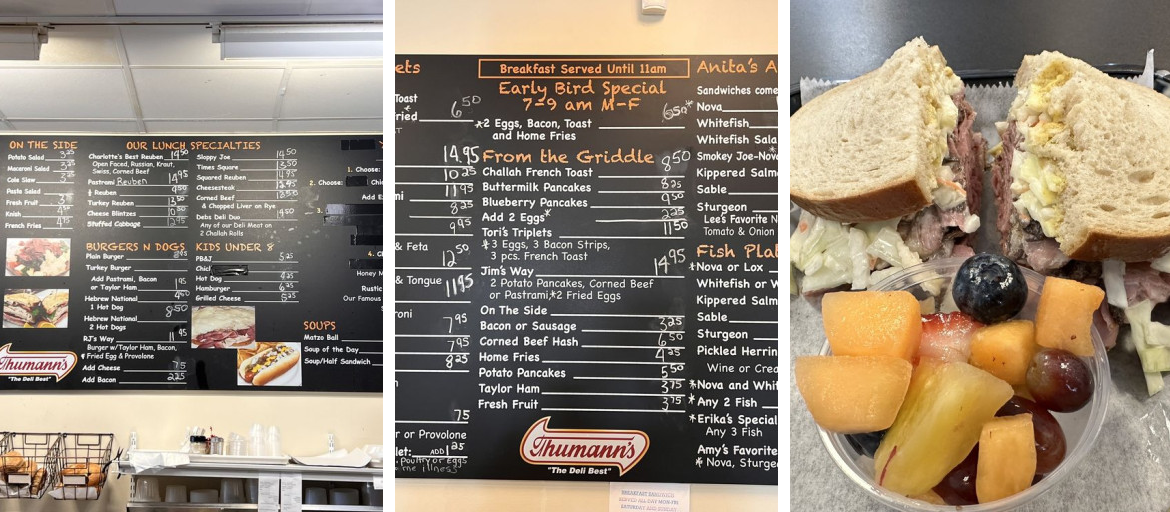 ON THE SIDE
Potato Salad 3.25
Macaroni Salad 3.25
Cole Slaw 3.25
Pasta Salad
Fresh Fruit
Knish
French Fries
OUR LUNCH SPECIALTIES
Charlotte's Best Reuben 14.50
Open Faced, Russian, Kraut,
Swiss, Corned Beef
Pastrami Reuben
½ Reuben
Turkey Reuben
Cheese Blintzes
Stuffed Cabbage
Sloppy Joe 14.50
Times Square
Squared Reuben 14.95
Cheesesteak
Corned Beef
& Chopped Liver on Rye
Debs Deli Duo 14.50
Any of our Deli Meat on
2 Challah Rolls
BURGERS N DOGS
Plain Burger 8.95
Turkey Burger
Add Pastrami, Bacon
or Taylor Ham
Hebrew National
1 Hot Dog
Hebrew National 8.50
2 Hot Dogs
RJ's Way 11.95
Burger w/Taylor Ham, Bacon,
Fried Egg & Provolone
Add Cheese .75
Add Bacon 2.25
KIDS UNDER 8
PB&J 5.25
Hot Dog
Hamburger 6.25
Grilled Cheese 5.25
SOUPS
Matzo Ball
Soup of the Day
Soup/Half Sandwich
1. Choose:
2. Choose:
3.
Add E
4.
Honey M
Rustic
Our Famous
Thumann's
"The Deli Best"
ets
Toast
ried 6.50
14.95
10.25
11.95
8.25
9.95
& Feta
12.50
& Tongue 11.95
roni
7.95
7.95
8.25
75
r or Provolone
let: ADD 1.25
Poultry or Eggs
illness
Breakfast Served Until 11am
Early Bird Special
7-9 am M-F
6.50*
*2 Eggs, Bacon, Toast
and Home Fries
From the Griddle
Challah French Toast 8.50
Buttermilk Pancakes 8.25
Blueberry Pancakes 9.50
Add 2 Eggs* 2.25
Tori's Triplets 11.50
*3 Eggs, 3 Bacon Strips,
3 pcs. French Toast
Jim's Way 14.95
2 Potato Pancakes, Corned Beef
or Pastrami,*2 Fried Eggs
On The Side
Bacon or Sausage 3.25
Corned Beef Hash 6.50
Home Fries 4.25
Potato Pancakes 5.50
Taylor Ham 3.75
Fresh Fruit 3.75
Thumann's
"The Deli Best"
Anita's A
Sandwiches come
Nova
Whitefish
Whitefish Sala
Smokey Joe-Nov
Kippered Salm
Sable
Sturgeon
Lee's Favorite N
Tomato & Onion
Fish Pla
*Nova or Lox
Whitefish or W
Kippered Salm
Sable
Sturgeon
Pickled Herrin
Wine or Crea
*Nova and Whit
*Any 2 Fish
*Erika's Special
Any 3 Fish
Amy's Favorite
* Nova, Sturge
BREAKFAST SANDWICH
SERVED ALL DAY MON-FRI
SATURDAY AND SUNDAY